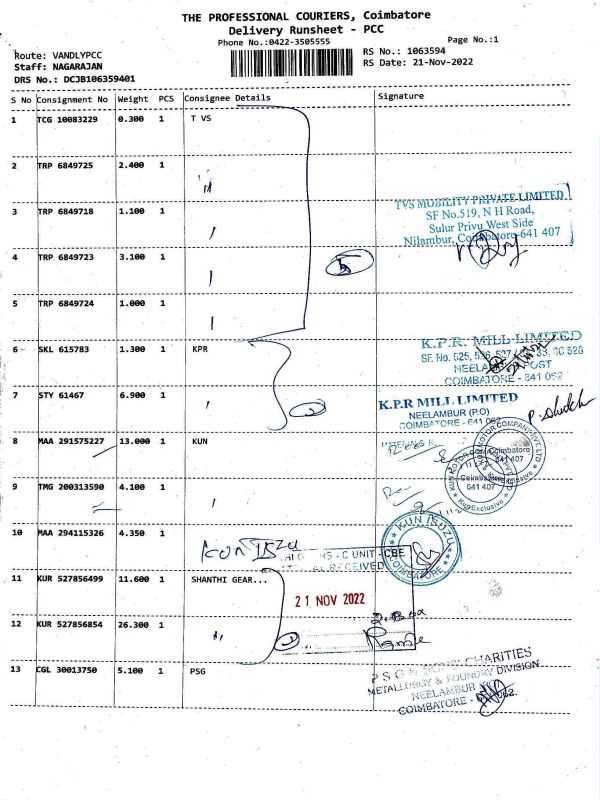 THE PROFESSIONAL COURIERS, Coimbatore
Delivery Runsheet - PCC
Phone No.:0422-3505555
Page No.:1
Route: VANDLYPCC
RS No.: 1063594
Staff: NAGARAJAN
RS Date: 21-Nov-2022
DRS No.: DCJB106359401
S No Consignment No Weight PCS Consignee Details Signature
1 TCG 10083229 0.300 1 T VS
2 TRP 6849725 2.400 1
3 TRP 6849718 1.100 1
TVS MOBILITY PRIVATE LIMITED
SF No.519, N H Road,
Sulur Privu West Side
Nilambur, Coimbatore-641 407
4 TRP 6849723 3.100 1
5
5 TRP 6849724 1.000 1
6 SKL 615783 1.300 1 KPR
K.P.R. MILL LIMITED
SF. No. 525, 526, 527
NEELAMBUR POST
COIMBATORE - 641 062
7 STY 61467 6.900 1
2
K.P.R MILL LIMITED
NEELAMBUR (P.O)
COIMBATORE - 641 062
8 MAA 291575227 13.000 1 KUN
KUN MOTOR COMPANY PVT. LTD
Coimbatore
641 407
Kun Exclusive
9 TMG 200313590 4.100 1
10 MAA 294115326 4.350 1
KUN ISUZU
KUN ISUZU
COIMBATORE
C UNIT - CBE
RECEIVED
11 KUR 527856499 11.600 1 SHANTHI GEAR...
21 NOV 2022
12 KUR 527856854 26.300 1
2
13 CGL 30013750 5.100 1 PSG
P S G & SONS' CHARITIES
METALLURGY & FOUNDRY DIVISION
NEELAMBUR
COIMBATORE - 641 062.